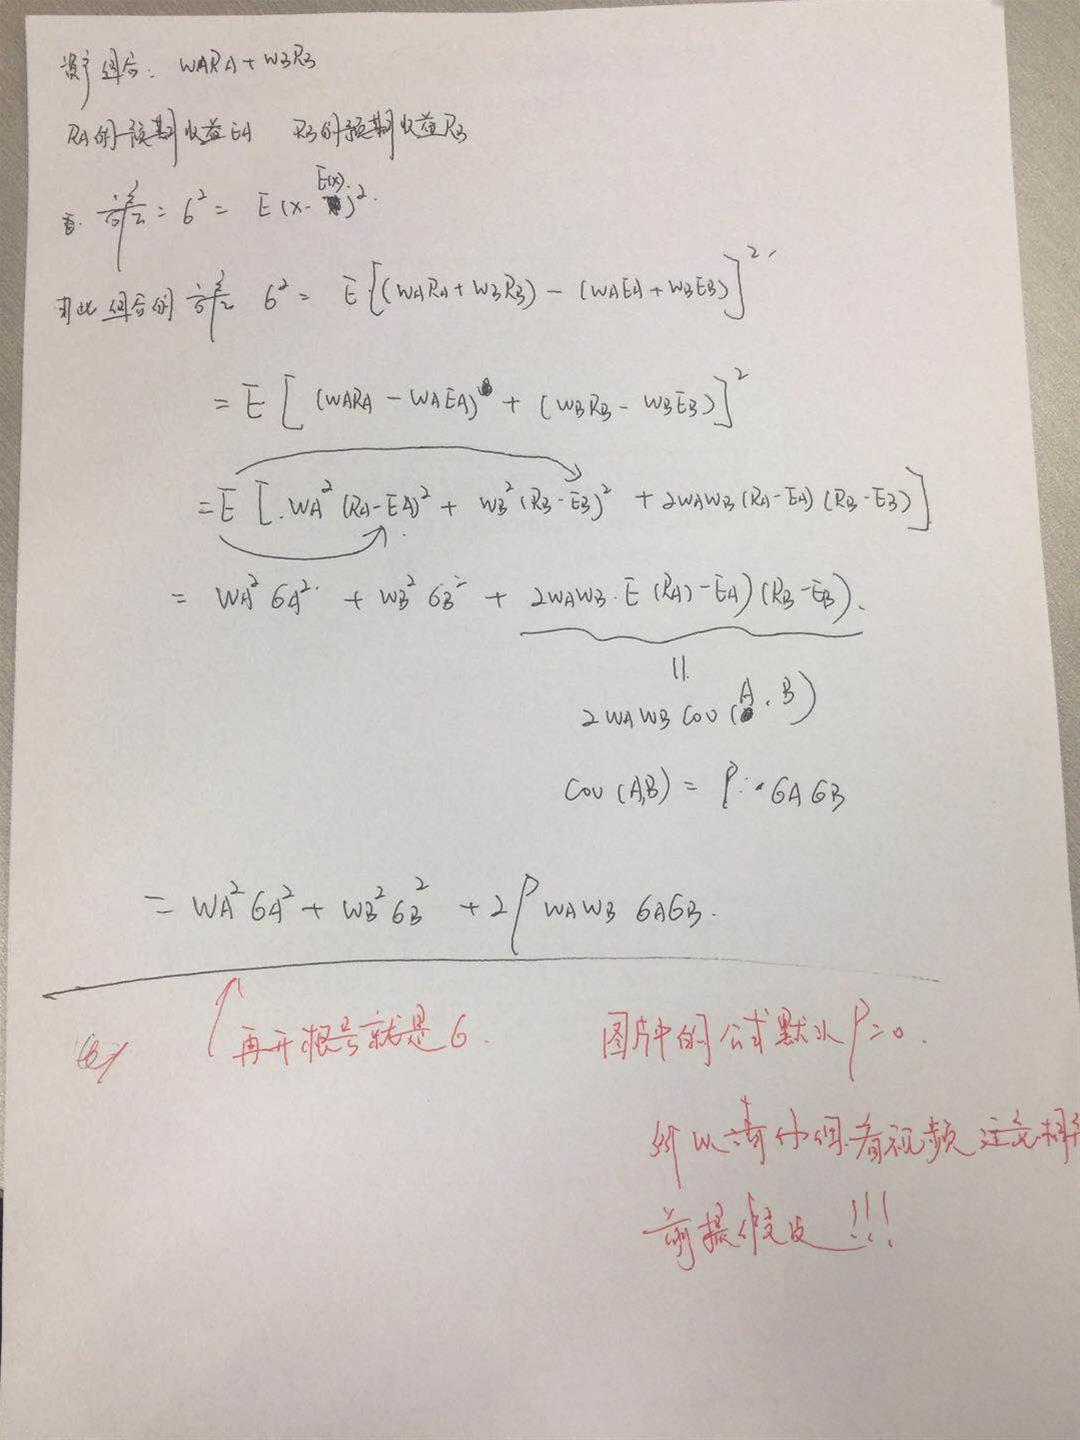 资产组合: WARA+WBRB
RA的预期收益EA RB的预期收益RB
方差=6²= E(x-E(x))²
因此组合的方差 6²= E[(WARA+WBRB)-(WAEA+WBEB)]²
=E[(WARA-WAEA)+(WBRB-WBEB)]²
=E[WA²(RA-EA)²+WB²(RB-EB)²+2WAWB(RA-EA)(RB-EB)]
=WA²6A²+WB²6B²+2WAWB·E(RA)-EA)(RB-EB).
||
2WAWB Cov(A.B)
Cov(A,B)=ρ·6A6B
=WA²6A²+WB²6B²+2ρWAWB6A6B.
再开根号就是6. 图片中的公式默认ρ=0.
所以请仔细看视频注意相关
前提假设!!!